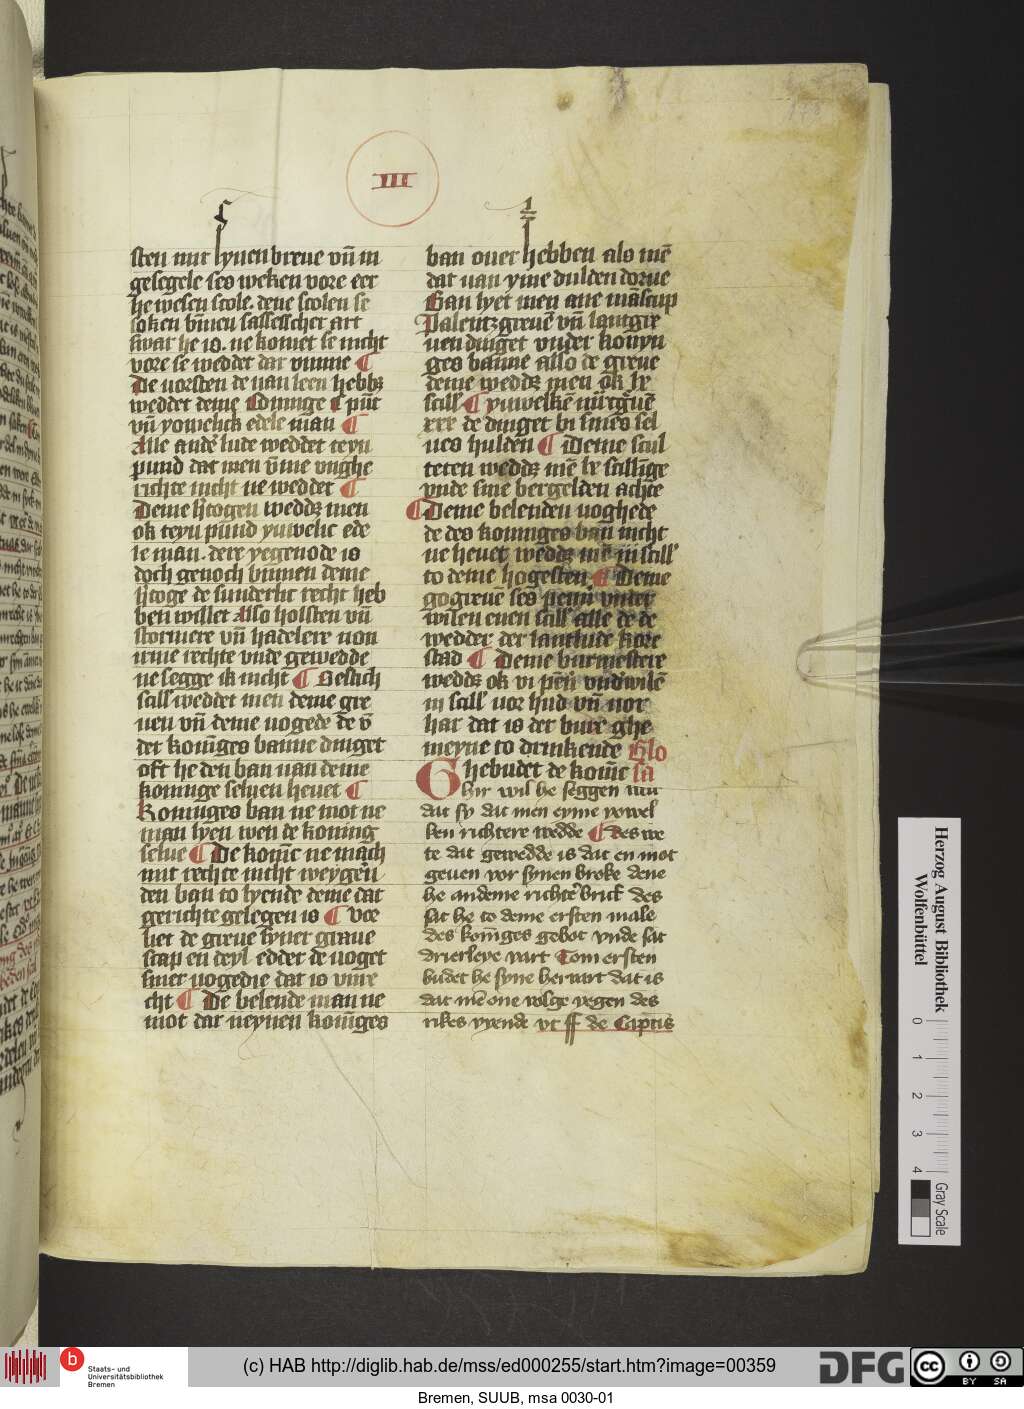 III
sten mit synen breue vn̄ in
gesegele ses weken vore eer
he wesen scole. dene scolen se
soken bīnen sassesscher art
swar he is. ne komet se nicht
vore se weddet dar vmme ¶
De vorsten de van leen hebbꝫ
weddet deme Coninge C pūt
vn̄ yowelick edele man ¶
Alle ander lude weddet teyn
pund dat men vm̄me vnghe
richte nicht ne weddet ¶
Deme htogen weddꝫ men
ok teyn pund yuwelic ede
le man. dere yegenode is
doch genoch binnen deme
htoge de sunderlic recht heb
ben willet Also holsten vn̄
stormere vn̄ hadelere von
erme rechte vnde gewedde
ne segge ik nicht ¶ Sestich
scill weddet men deme gre
uen vn̄ deme vogede de vn̄
der konīges banne dinget
oft he den ban van deme
koninge seluen heuet ¶
Koninges ban ne mot ne
man lyen wen de koning
selue ¶ De konīc ne mach
mit rechte nicht weygern
den ban to lyende deme dat
gerichte gelegen is ¶ Vor
liet de greue syner graue
scap en deyl edder de voget
siner vogedie dat is vnre
cht ¶ De belende man ne
mot dar neynen konīges
ban ouer hebben als mē
dat van yme dulden dorue
Ban lyet men ane māscup
Palentzgreuē vn̄ lantgre
uen dinget vnder konyn
ges banne also de greue
deme weddꝫ men ok lx
scill ¶ yuwelkē mrcgreuē
xxx de dinget bi sines sel
ues hulden ¶ Deme scul
teten weddꝫ mē be scillige
vnde sine bergelden achte
¶ Deme belenden voghede
de des koninges ban nicht
ne heuet weddꝫ mē iij scill
to deme hogesten ¶ Deme
gogreuē ses penn vnter
wilen euen scill alle de de
wedder der lantlude kore
stad ¶ Deme burmestere
weddꝫ ok vi pen vndwilē
iij scill vor hud vn̄ vor
har dat is der bure ghe
meyne to drinkende Glo
Ghebudet de konīc sa
hir wil he seggen wo
dat sy dat men eyme yowel
ken richtere wedde ¶ des we
te dat gewedde is dat en mot
geuen vor synen broke dene
he andeme richte brict des
sat he to deme ersten male
des konīges gebot vnde sat
drierleye vart Tom ersten
budet he syne heruart dat is
dat mē one volge yegen des
rikes vyende vt ff de Captis
Herzog August Bibliothek
Wolfenbüttel
0 1 2 3 4
Gray Scale
b
Staats- und
Universitätsbibliothek
Bremen
(c) HAB http://diglib.hab.de/mss/ed000255/start.htm?image=00359
DFG
cc BY SA
Bremen, SUUB, msa 0030-01